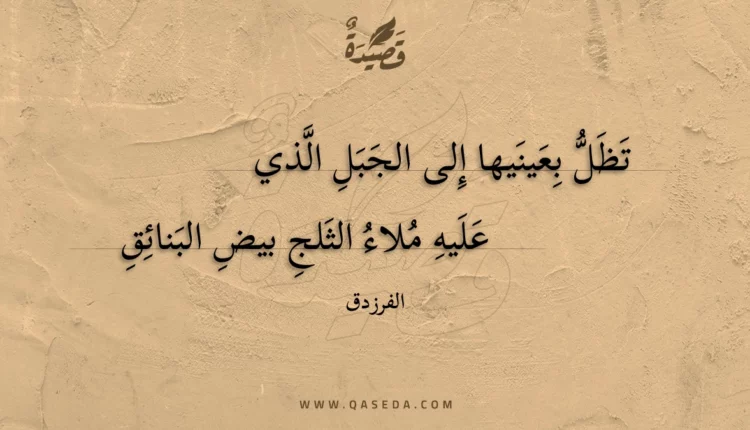 قَصِيدَةٌ
تَظَلُّ بِعَينَيها إِلى الجَبَلِ الَّذي
عَلَيهِ مُلاءُ الثَلجِ بيضِ البَنائِقِ
الفرزدق
WWW.QASEDA.COM